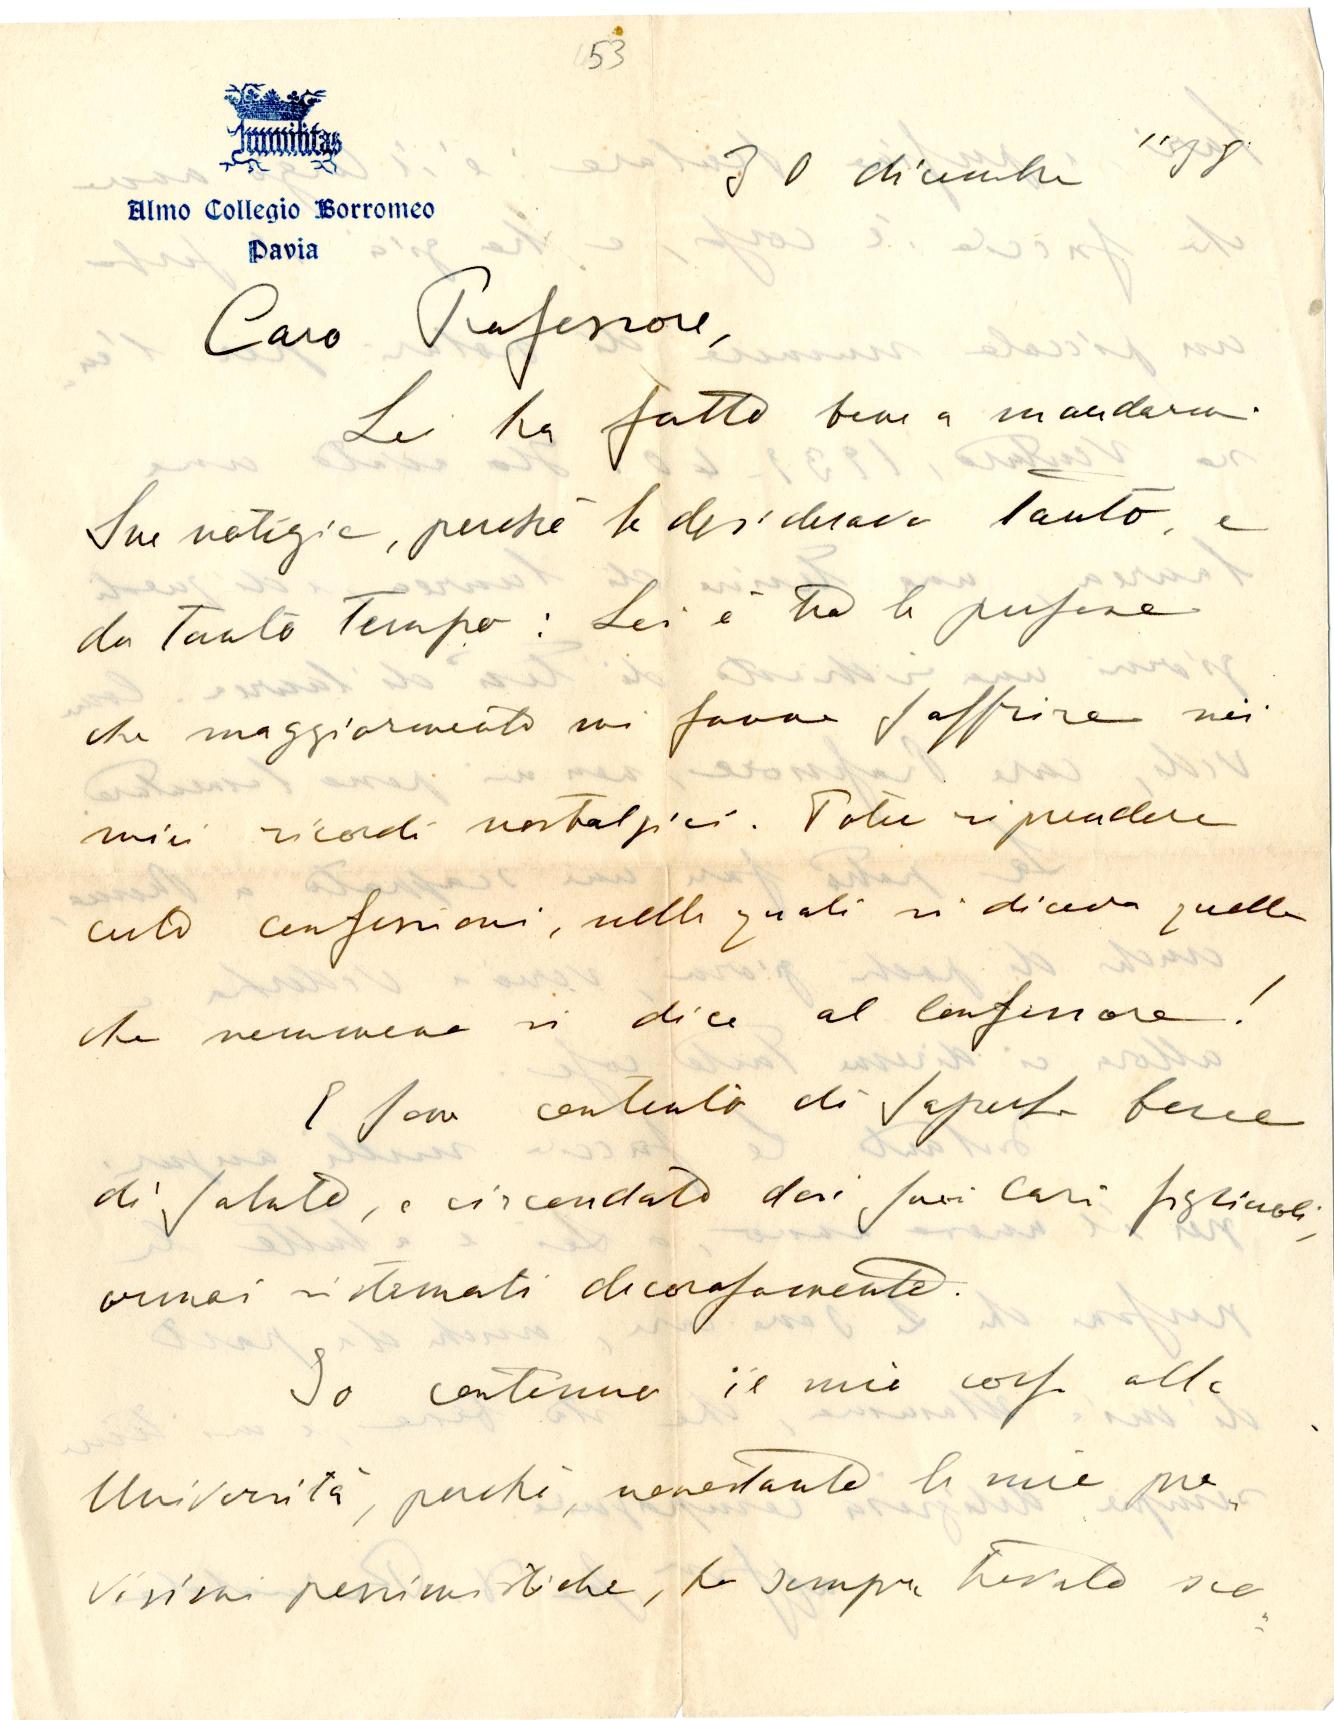 53
Humilitas
Almo Collegio Borromeo
Pavia
30 dicembre "38
Caro Professore,
Lei ha fatto bene a mandarmi
Sue notizie, perché le desideravo tanto, e
da tanto tempo: Lei è tra le persone
che maggiormente mi fanno soffrire nei
miei ricordi nostalgici. Poter riprendere
certe confessioni, nelle quali si diceva quello
che nemmeno si dice al confessore!
E sono contento di saperla bene
di salute, e circondato dai suoi cari figliuoli,
ormai sistemati decorosamente.
Io continuo il mio corso alla
Università, perché, nonostante le mie pre-
visioni pessimistiche, ho sempre trovato sco-